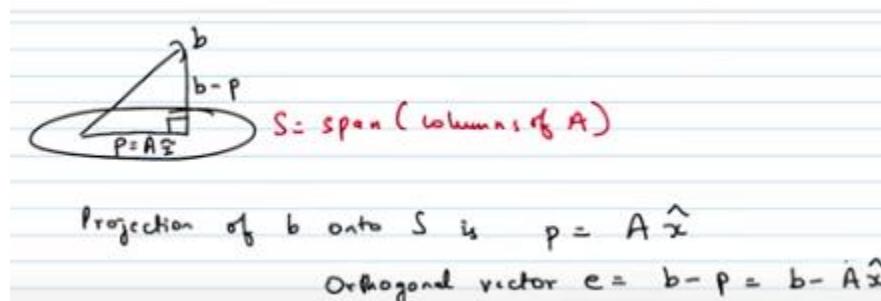 b
b-p
S = span (columns of A)
p = A x̂
Projection of b onto S is p = A x̂
Orthogonal vector e = b - p = b - A x̂